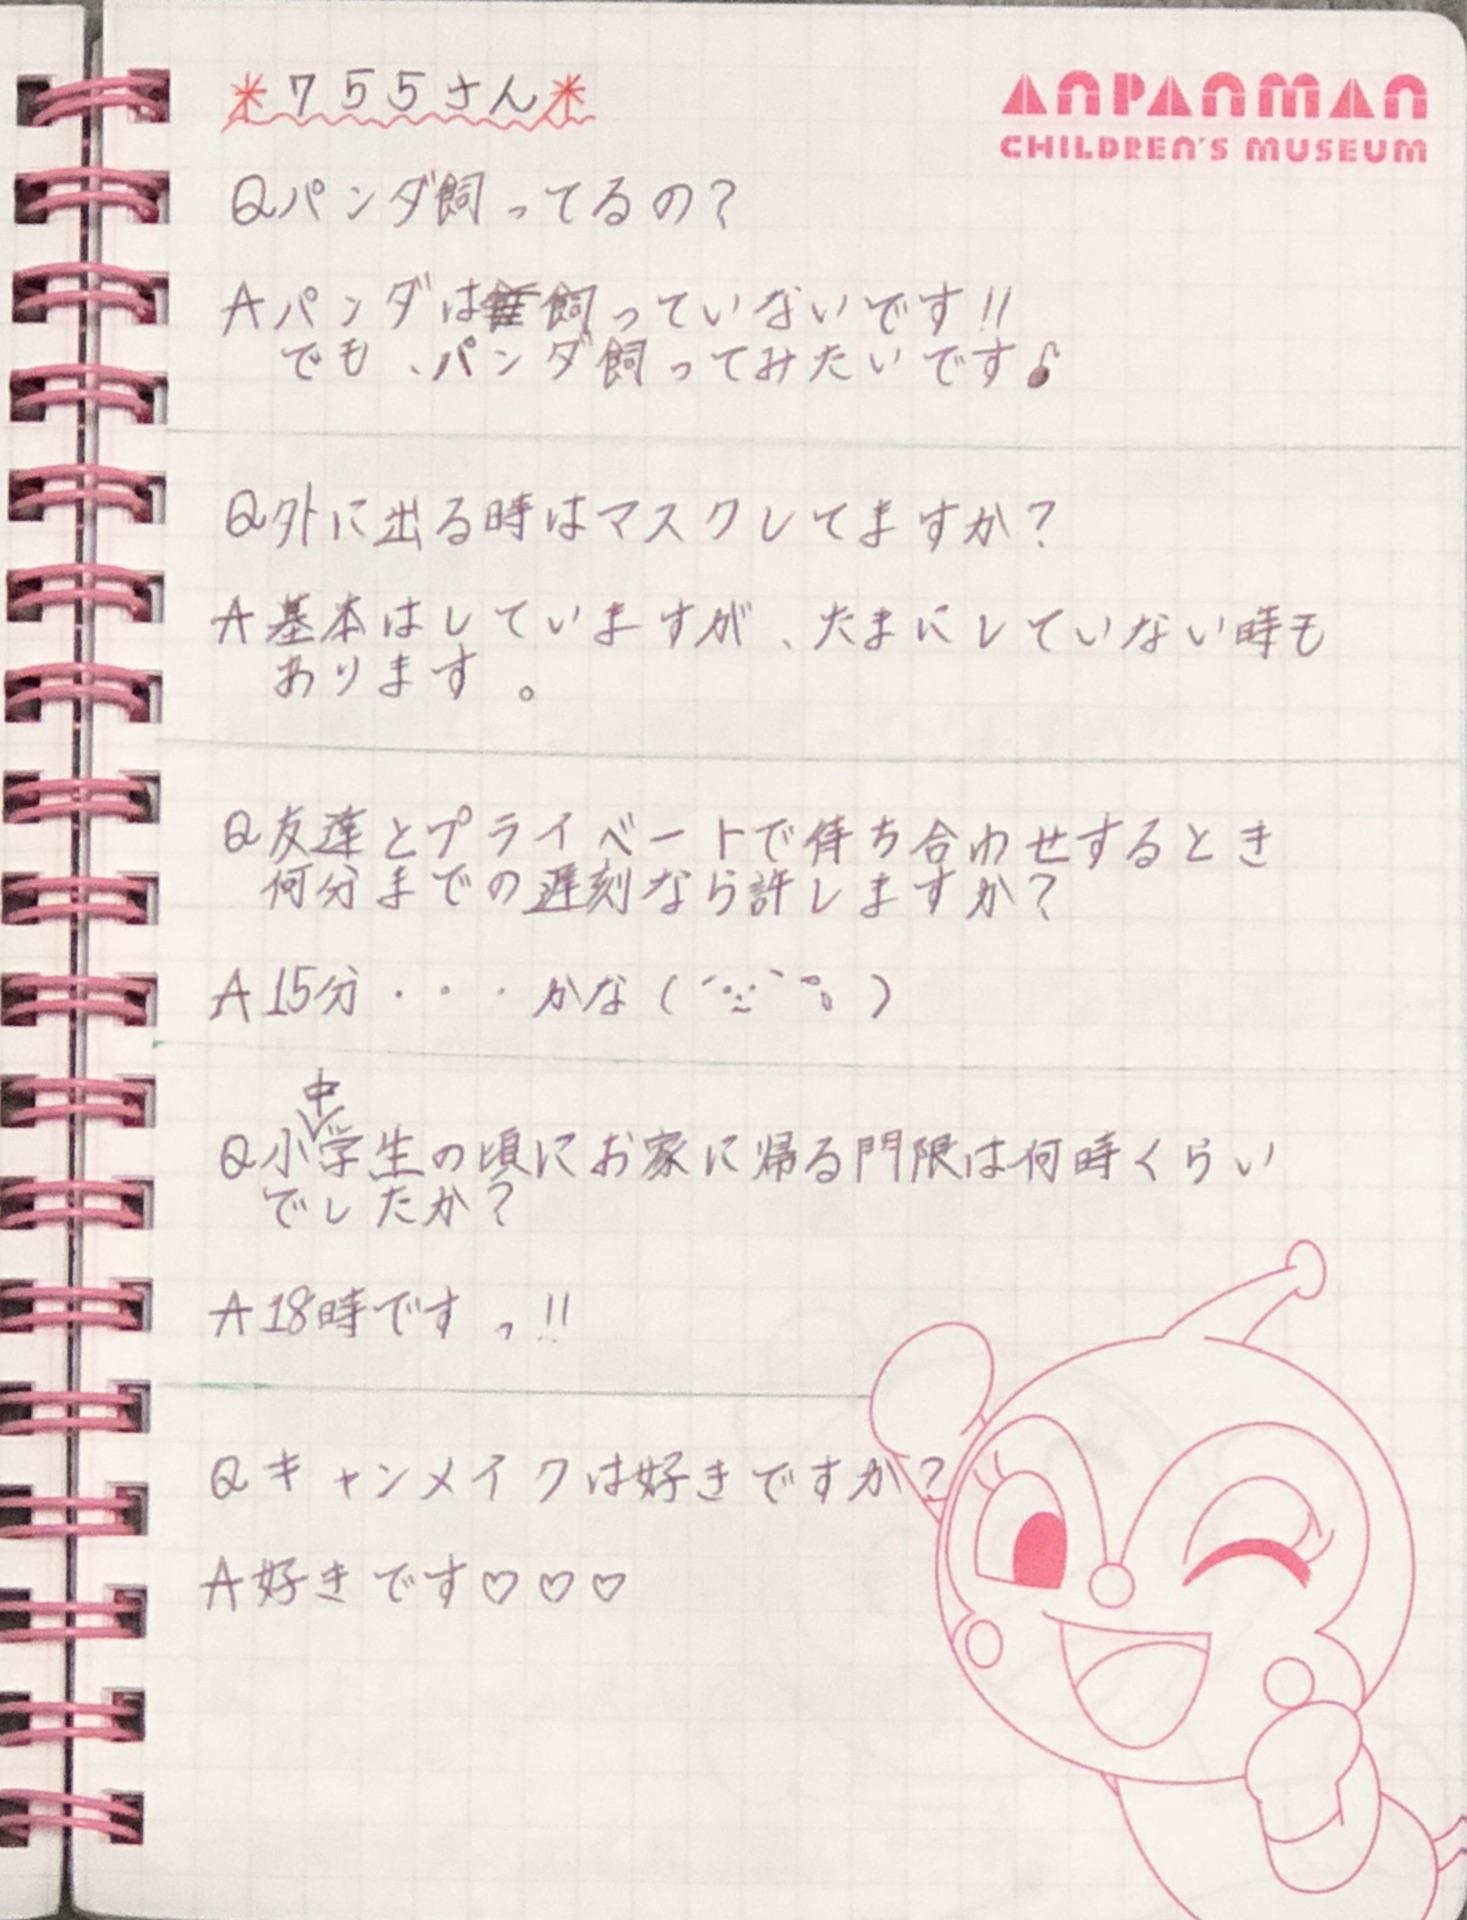 *755さん*
ANPANMAN
CHILDREN'S MUSEUM
Qパンダ飼ってるの?
Aパンダは飼っていないです!!
でも、パンダ飼ってみたいです♪
Q外に出る時はマスクしてますか?
A基本はしていますが、たまにしていない時も
あります。
Q友達とプライベートで待ち合わせするとき
何分までの遅刻なら許しますか?
A15分・・・かな
中
Q小学生の頃にお家に帰る門限は何時くらい
でしたか?
A18時ですっ!!
Qキャンメイクは好きですか?
A好きです♡♡♡